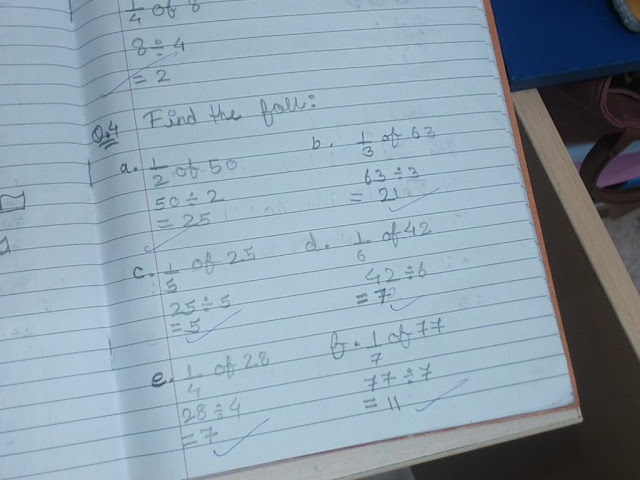 1/4 of 8
8 ÷ 4
= 2
Q.4 Find the foll:
a. 1/2 of 50
50 ÷ 2
= 25
b. 1/3 of 63
63 ÷ 3
= 21
c. 1/5 of 25
25 ÷ 5
= 5
d. 1/6 of 42
42 ÷ 6
= 7
e. 1/4 of 28
28 ÷ 4
= 7
f. 1/7 of 77
77 ÷ 7
= 11